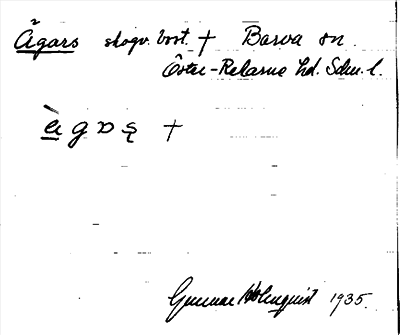 Ågars skogv. bost. + Barva sn.
Öster-Rekarne hd. Södm. l.
+
Gunnar Holmquist 1935.